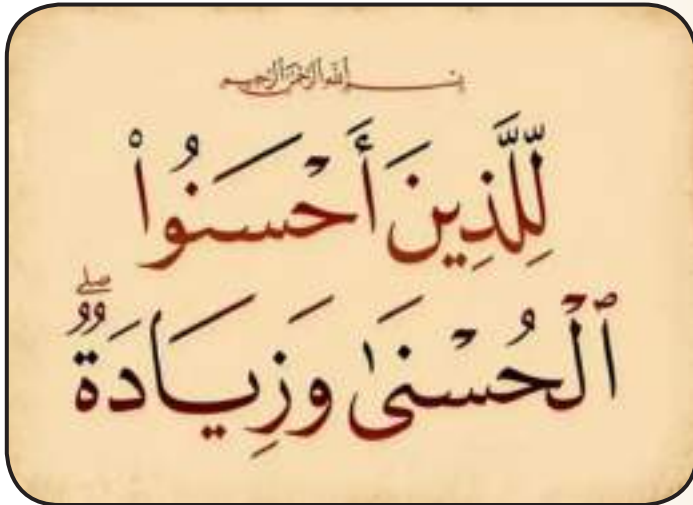 بسم الله الرحمن الرحيم
لِّلَّذِينَ أَحْسَنُوا۟
ٱلْحُسْنَىٰ وَزِيَادَةٌ ۖ